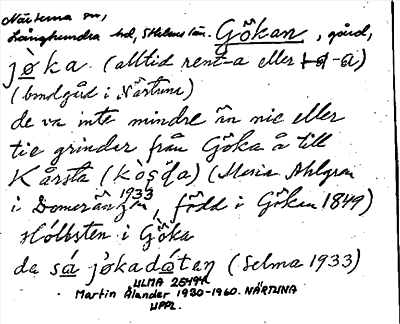 Närtuna sn,
Långhundra hd, Sthlms län. Gökan, gård,
jøka. (alltid rent -a eller -a)
(bondgård i Närtuna)
de va inte mindre än nie eller
tie grinder från Göka å till
Kårsta (Maria Ahlgren
i Domarängen 1933, född i Gökan 1849)
i Göka
da sá jøkadátan (Selma 1933)
ULMA 25494.
Martin Ålander 1930-1960. NÄRTUNA
UPPL.